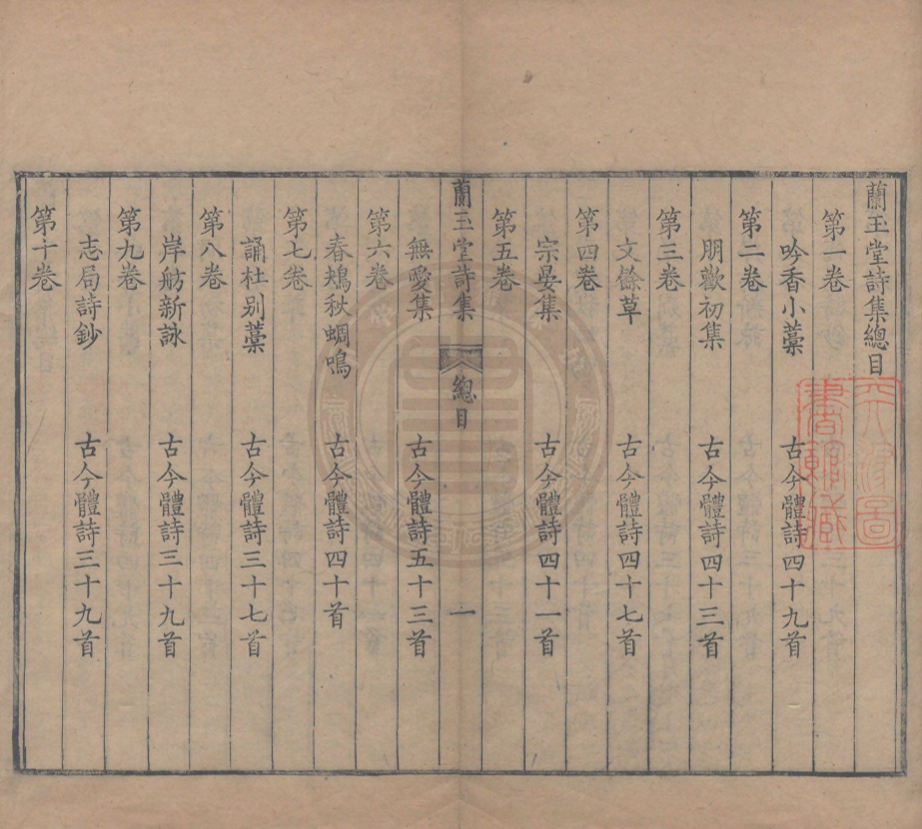 蘭玉堂詩集總目
第一卷
吟香小藁 古今體詩四十九首
第二卷
朋歡初集 古今體詩四十三首
第三卷
文餘草 古今體詩四十七首
第四卷
宗晏集 古今體詩四十一首
第五卷
蘭玉堂詩集 總目 一
無憂集 古今體詩五十三首
第六卷
春鳺秋蜩鳴 古今體詩四十首
第七卷
誦杜别藁 古今體詩三十七首
第八卷
岸舫新詠 古今體詩三十九首
第九卷
志局詩鈔 古今體詩三十九首
第十卷
書館藏